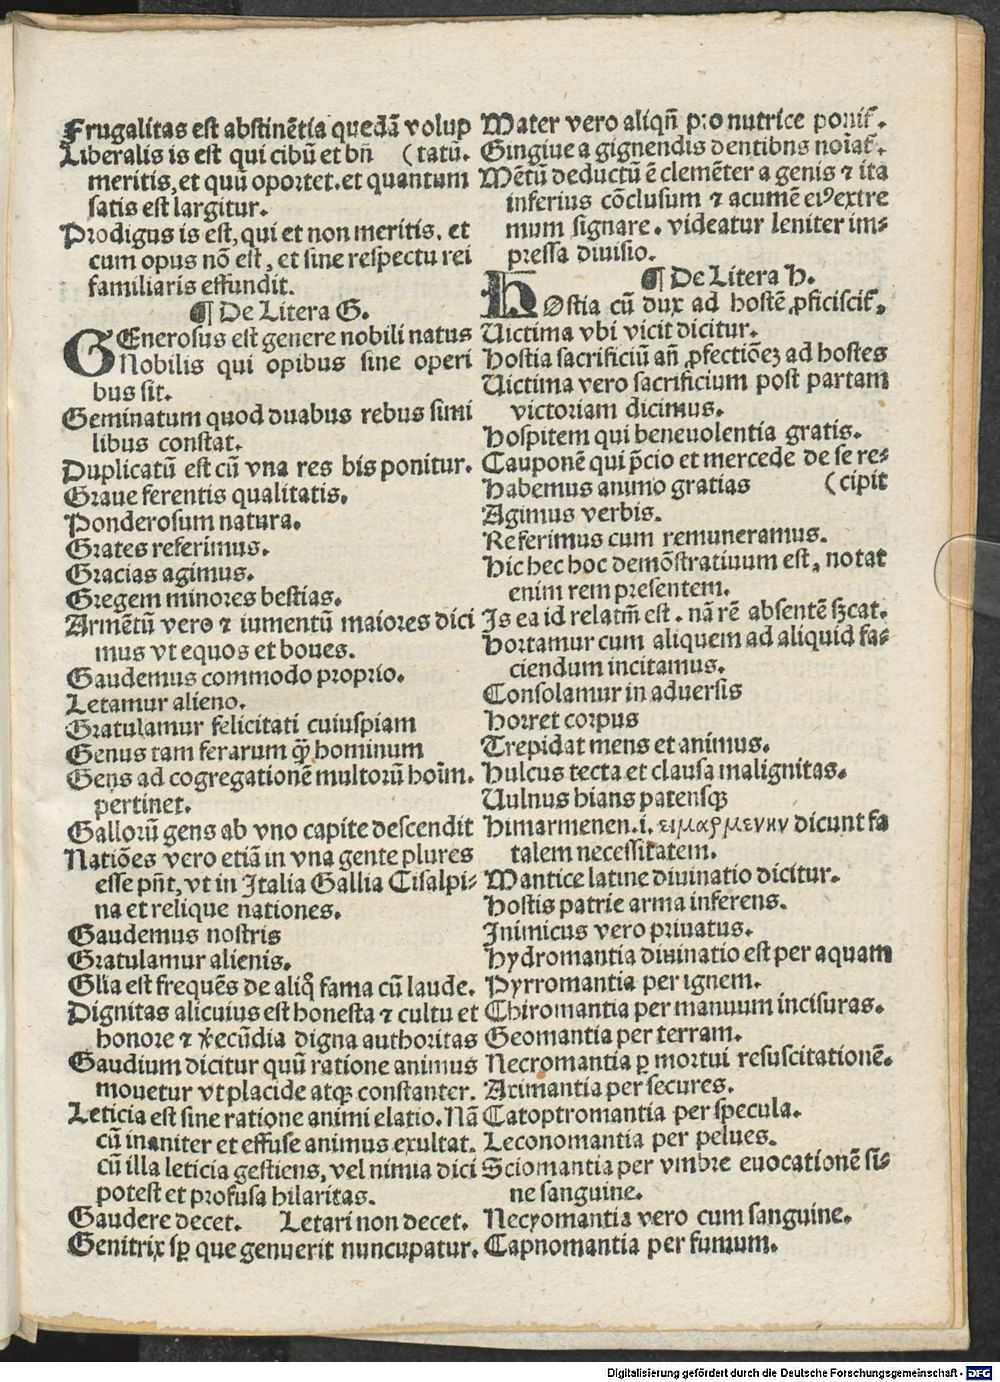 Frugalitas est abstinẽtia quedã volup
Liberalis is est qui cibũ et bñ (tatũ.
meritis, et quũ oportet. et quantum
satis est largitur.
Prodigus is est, qui et non meritis. et
cum opus nõ est, et sine respectu rei
familiaris effundit.
¶ De Litera G.
GEnerosus est genere nobili natus
Nobilis qui opibus sine operi
bus sit.
Geminatum quod duabus rebus simi
libus constat.
Duplicatũ est cũ vna res bis ponitur.
Graue ferentis qualitatis.
Ponderosum natura.
Grates referimus.
Gracias agimus.
Gregem minores bestias.
Armẽtũ vero ⁊ iumentũ maiores dici
mus vt equos et boues.
Gaudemus commodo proprio.
Letamur alieno.
Gratulamur felicitati cuiuspiam
Genus tam ferarum q̃ hominum
Gens ad cogregationẽ multorũ hoĩm.
pertinet.
Gallorũ gens ab vno capite descendit
Natiões vero etiã in vna gente plures
esse pñt, vt in Italia Gallia Cisalpi⸗
na et relique nationes.
Gaudemus nostris
Gratulamur alienis.
Glĩa est frequẽs de aliq̃ fama cũ laude.
Dignitas alicuius est honesta ⁊ cultu et
honore ⁊ ꝟecũdia digna authoritas
Gaudium dicitur quũ ratione animus
mouetur vt placide atqꝫ constanter.
Leticia est sine ratione animi elatio. Nã
cũ inaniter et effuse animus exultat.
cũ illa leticia gestiens, vel nimia dici
potest et profusa hilaritas.
Gaudere decet. Letari non decet.
Genitrix sꝑ que genuerit nuncupatur.
Mater vero aliqñ pro nutrice ponit᷑.
Gingiue a gignendis dentibns noĩat᷑.
Mẽtũ deductũ ẽ clemẽter a genis ⁊ ita
inferius cõclusum ⁊ acumẽ eiꝰ extre
mum signare. videatur leniter im⸗
pressa diuisio.
¶ De Litera H.
HOstia cũ dux ad hostẽ ꝓficiscit᷑.
Uictima vbi vicit dicitur.
Hostia sacrificiũ añ ꝓfectiõeꝫ ad hostes
Uictima vero sacrificium post partam
victoriam dicimus.
Hospitem qui beneuolentia gratis.
Cauponẽ qui p̃cio et mercede de se re⸗
Habemus animo gratias (cipit
Agimus verbis.
Referimus cum remuneramus.
Hic hec hoc demõstratiuum est, notat
enim rem presentem.
Is ea id relatm̃ est. nã rẽ absentẽ sĩcat.
Hortamur cum aliquem ad aliquid fa⸗
ciendum incitamus.
Consolamur in aduersis
Horret corpus
Trepidat mens et animus.
Hulcus tecta et clausa malignitas.
Uulnus hians patensqꝫ
Himarmenen .i. ειμαρμενην dicunt fa
talem necessitatem.
Mantice latine diuinatio dicitur.
Hostis patrie arma inferens.
Inimicus vero priuatus.
Hydromantia diuinatio est per aquam
Pyrromantia per ignem.
Chiromantia per manuum incisuras.
Geomantia per terram.
Necromantia ꝑ mortui resuscitationẽ.
Arimantia per secures.
Catoptromantia per specula.
Leconomantia per pelues.
Sciomantia per vmbre euocationẽ si⸗
ne sanguine.
Necyomantia vero cum sanguine.
Capnomantia per fumum.
Digitalisierung gefördert durch die Deutsche Forschungsgemeinschaft - DFG